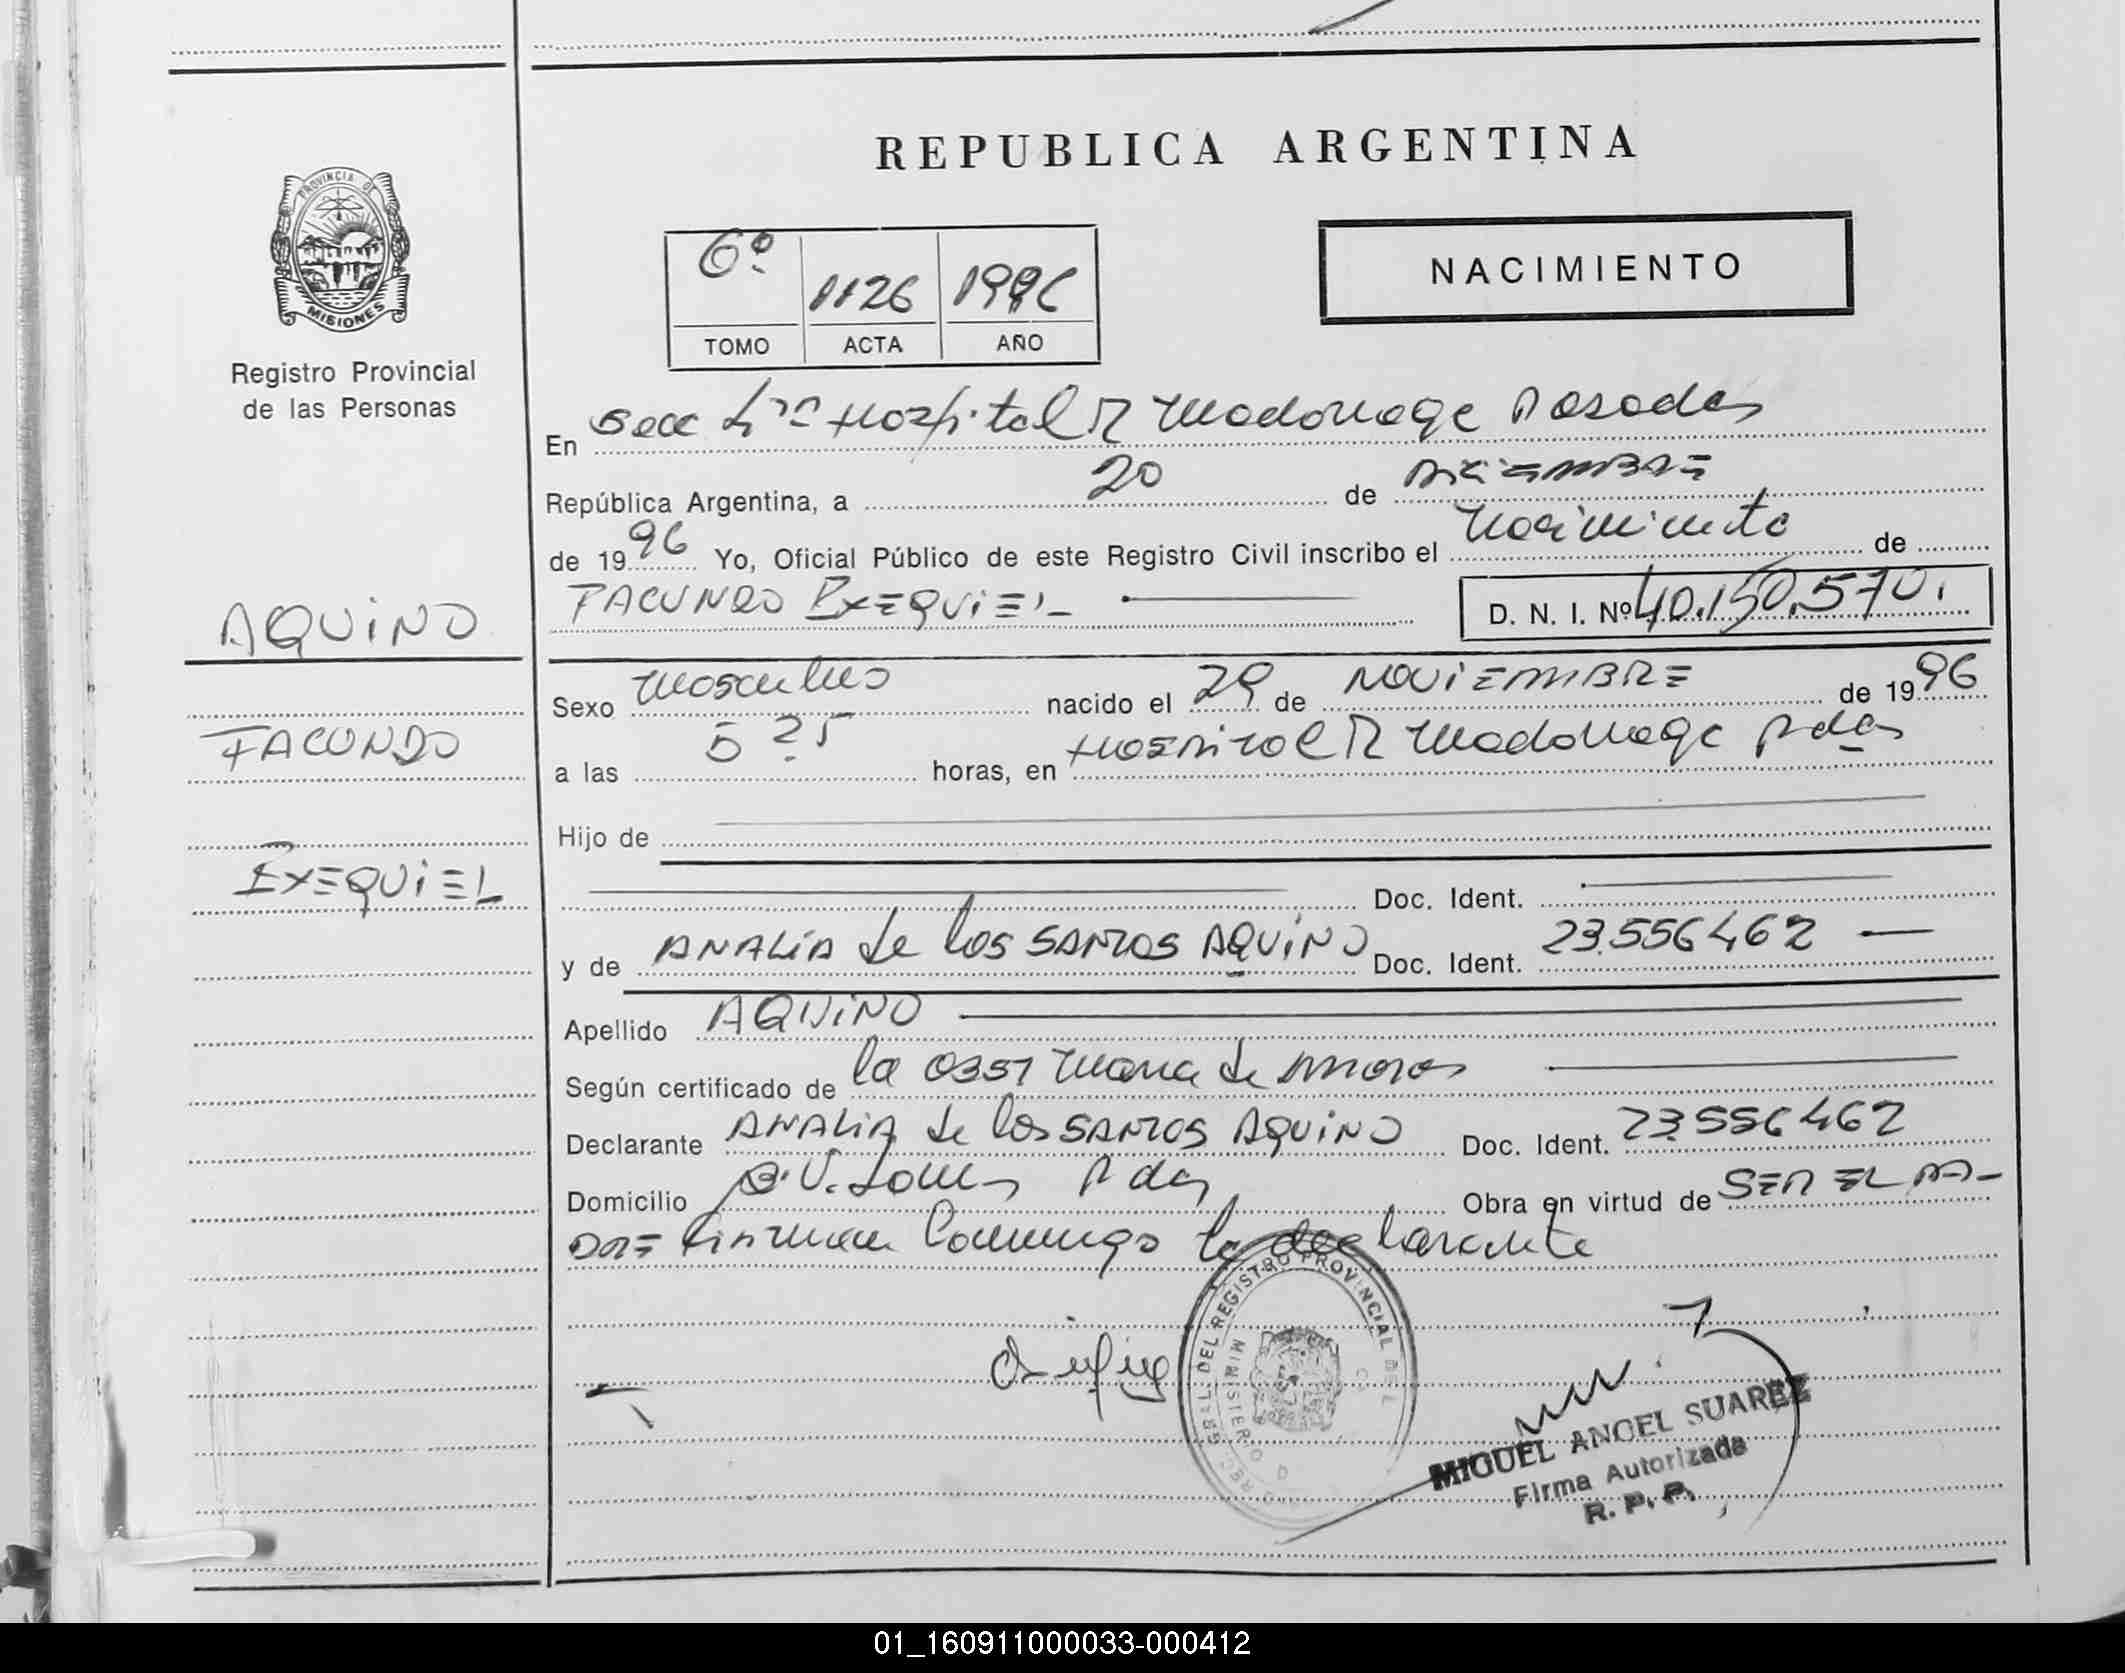 REPUBLICA ARGENTINA
PROVINCIA DE
MISIONES
Registro Provincial
de las Personas
6º 1126 1996
TOMO ACTA AÑO
NACIMIENTO
En Secc 1ra Hospital R Madariaga Posadas
República Argentina, a 20 de DICIEMBRE
de 1996 Yo, Oficial Público de este Registro Civil inscribo el Nacimiento de
FACUNDO EXEQUIEL D. N. I. Nº 40.150.570.
AQUINO
FACUNDO
EXEQUIEL
Sexo Masculino nacido el 29 de NOVIEMBRE de 1996
a las 5 25 horas, en Hospital R Madariaga Pdas
Hijo de
Doc. Ident.
y de ANALIA de los SANTOS AQUINO Doc. Ident. 23.556462
Apellido AQUINO
Según certificado de la Obst Maria de
Declarante ANALIA de los SANTOS AQUINO Doc. Ident. 23.556462
Domicilio Pdas Obra en virtud de SER
la declarante
REGISTRO PROVINCIAL DE L
MINISTERIO
MIGUEL ANGEL SUAREZ
Firma Autorizada
R. P. P.
01_160911000033-000412